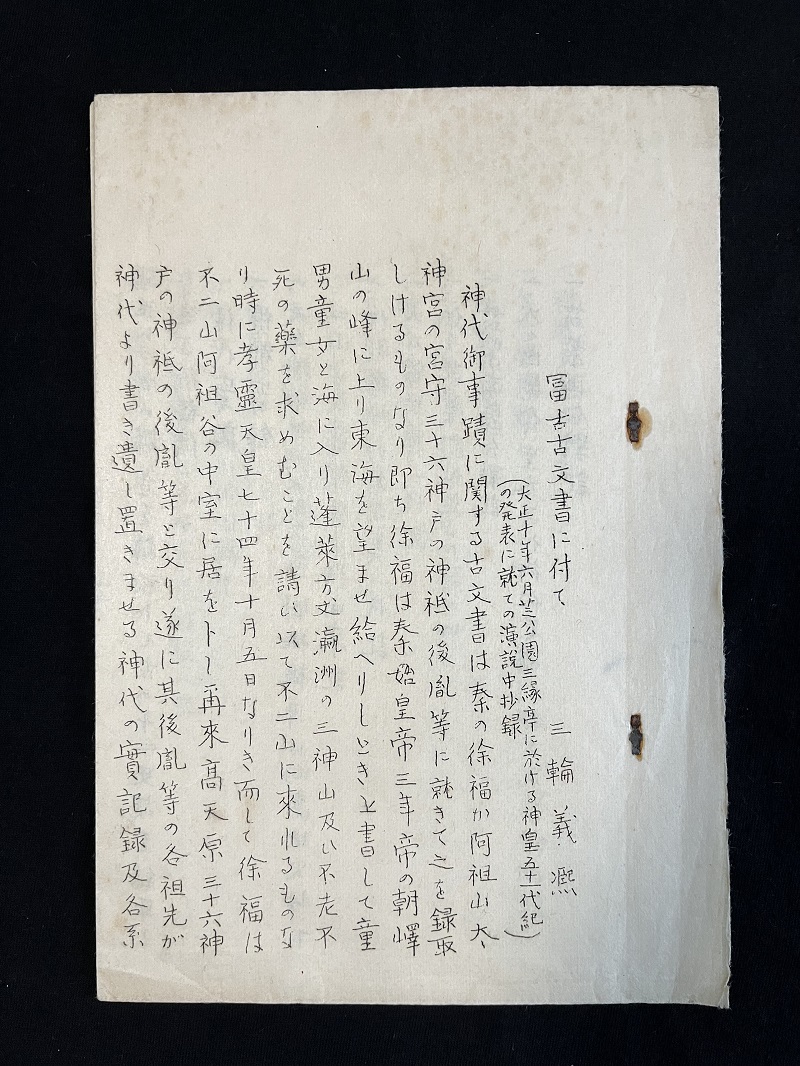 冨士古文書に付て
三輪義凞
(大正十年六月芝公園三縁亭に於ける神皇五十一代紀
の発表に就ての演説中抄録)
神代御事蹟に関する古文書は秦の徐福か阿祖山太
神宮の宮守三十六神戸の神祇の後胤等に就きて之を録取
しけるものなり即ち徐福は秦始皇帝三年帝の朝嶧
山の峰に上り東海を望ませ給へりしとき上書して童
男童女と海に入り蓬萊方丈瀛洲の三神山及い不老不
死の藥を求めむことを請い以て不二山に來れるものな
り時に孝靈天皇七十四年十月五日なりき而して徐福は
不二山阿祖谷の中室に居を卜し再來髙天原三十六神
戸の神祇の後胤等と交り遂に其後胤等の各祖先が
神代より書き遺し置きませる神代の實記録及各系